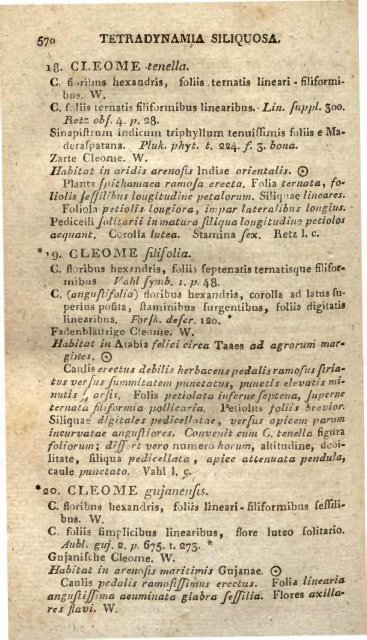 570 TETRADYNAMIA SILIQUOSA.
18. CLEOME tenella.
C. floribus hexandris, foliis ternatis lineari-filiformi-
bus. W.
C. foliis ternatis filiformibus linearibus. Lin. ſuppl. 300.
Retz obſ. 4. p. 28.
Sinapiſtrum indicum triphyllum tenuiſſimis foliis e Ma-
deraſpatana. Pluk. phyt. t. 224. f. 3. bona.
Zarte Cleome. W.
Habitat in aridis arenoſis Indiae orientalis. ☉
Planta ſpithamaea ramoſa erecta. Folia ternata, fo-
liolis ſeſſilibus longitudine petalorum. Siliquae lineares.
Foliola petiolis longiora, impar lateralibus longius.
Pedicelli ſolitarii in matura ſiliqua longitudine petiolos
aequant. Corolla lutea. Stamina ſex. Retz l. c.
*19. CLEOME filifolia.
C. floribus hexandris, foliis ſeptenatis ternatisque filifor-
mibus Vahl ſymb. 1. p. 48.
C. (anguſtifolia) floribus hexandris, corolla ad latus ſu-
perius poſita, ſtaminibus ſurgentibus, foliis digitatis
linearibus. Forſk. deſcr. 120. *
Fadenblättrige Cleome. W.
Habitat in Arabia felici circa Taaes ad agrorum mar-
gines. ☉
Caulis erectus debilis herbaceus pedalis ramoſus ſtria-
tus verſus ſummitatem punctatus, punctis elevatis mi-
nutis ſparſis. Folia petiolata inferne ſeptena, ſuperne
ternata filiformia pollicaria. Petiolus foliis brevior.
Siliquae digitales pedicellatae, verſus apicem parum
incurvatae anguſtiores. Convenit cum C. tenella figura
foliorum; differt vero numero horum, altitudine, debi-
litate, ſiliqua pedicellata, apice attenuata pendula,
caule punctato. Vahl l. c.
*20. CLEOME gujanenſis.
C. floribus hexandris, foliis lineari-filiformibus ſeſſili-
bus. W.
C. foliis ſimplicibus linearibus, flore luteo ſolitario.
Aubl. guj. 2. p. 675. t. 273. *
Gujaniſche Cleome. W.
Habitat in arenoſis maritimis Gujanae. ☉
Caulis pedalis ramoſiſſimus erectus. Folia linearia
anguſtiſſima acuminata glabra ſeſſilia. Flores axilla-
res flavi. W.